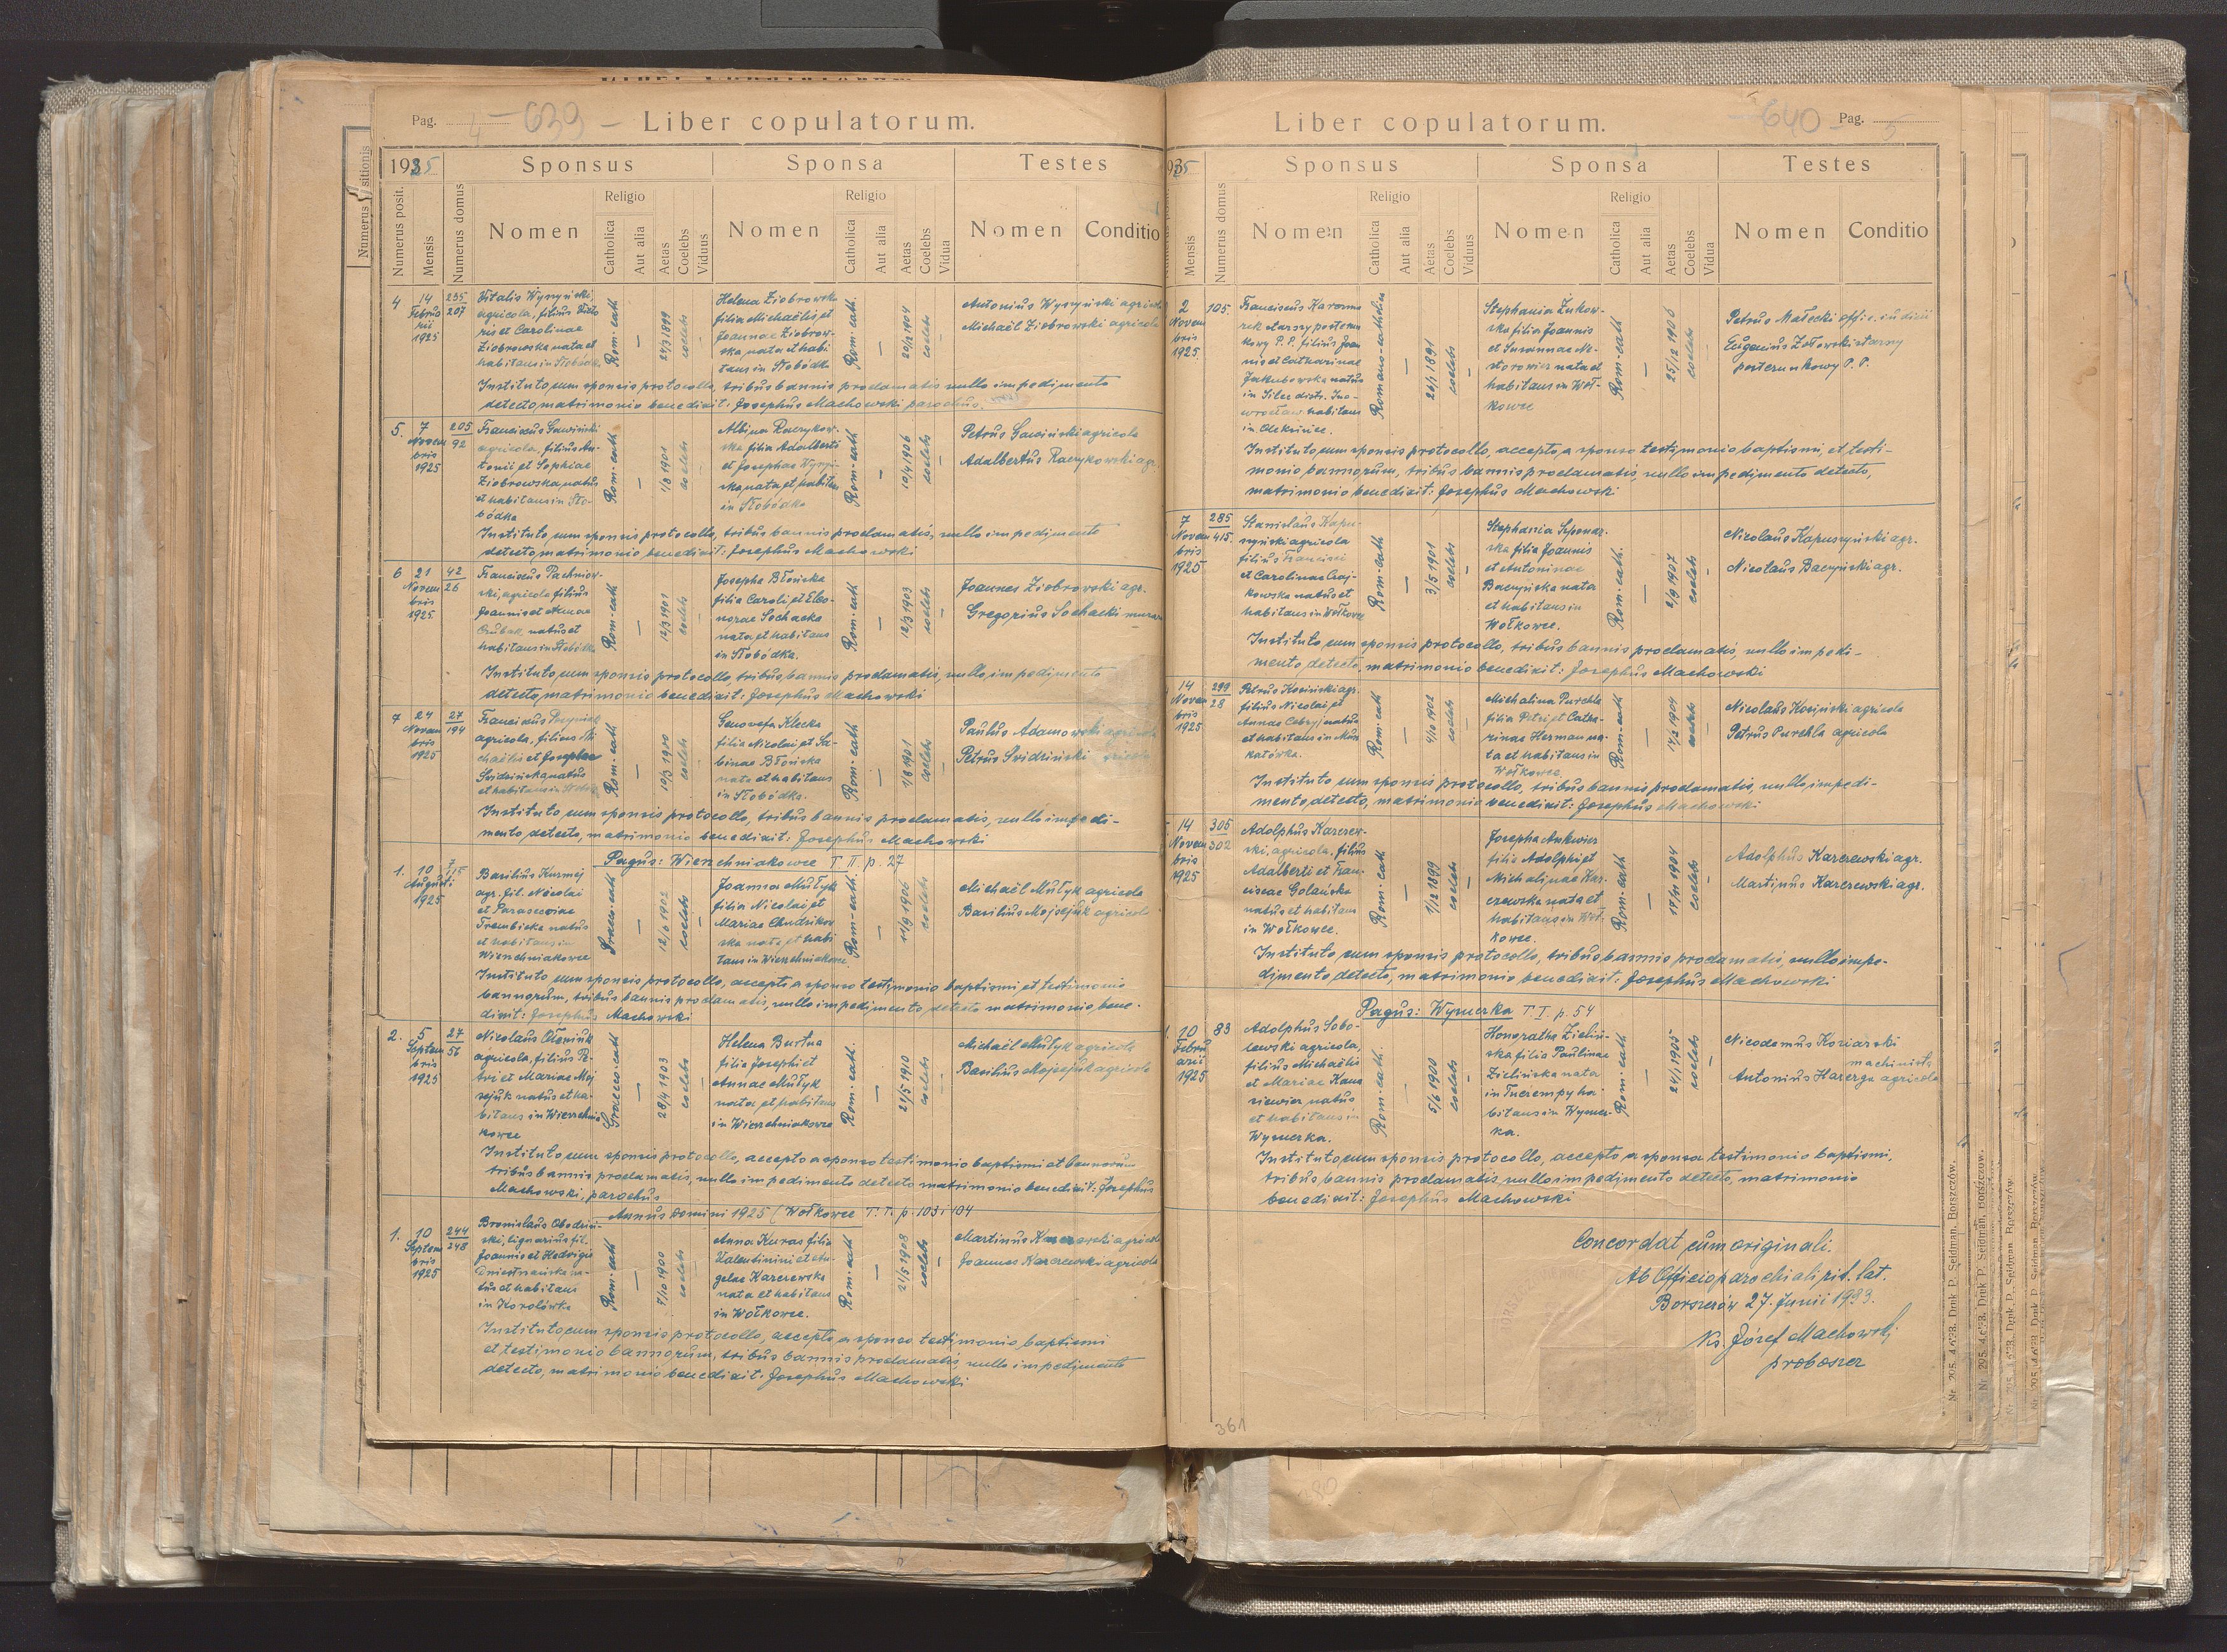 Pag. 4 - 639 - Liber copulatorum.
1925 Sponsus Sponsa Testes
Numerus posit. Mensis Numerus domus Nomen Religio Catholica Aut alia Aetas Coelebs Viduus Nomen Religio Catholica Aut alia Aetas Coelebs Vidua Nomen Conditio
4 14 Februarii 1925 235/207
Vitalis Wyszyński,
agricola, filius Victo
ris et Carolinae
Ziobrowska natus et
habitans in Słobódce
Rom-cath. — 24/3 1899 coelebs —
Helena Ziobrowska
filia Michaëlis et
Joannae Ziobrow-
ska nata et habi
tans in Słobódka
Rom-cath. — 20/12 1904 coelebs —
Antonius Wyszyński agricola
Michaël Ziobrowski agricola
Instituto, cum sponsis protocollo, tribus bannis proclamatis nullo impedimento
detecto, matrimonio benedixit: Josephus Machowski parochus.
5. 7 Novembris 1925 205/92
Franciscus Gawiński
agricola, filius An-
tonii et Sophiae
Ziobrowska, natus
et habitans in Sło-
bódka
Rom-cath — 1/8 1901 coelebs
Albina Raczykow-
ska filia Adalberti
et Josephae Wyszyń-
ska nata et habitans
in Słobódka
Rom-cath — 10/4 1906 coelebs —
Petrus Gawiński agricola
Adalbertus Raczykowski agr.
Instituto, cum sponsis protocollo, tribus bannis proclamatis, nullo impedimento
detecto, matrimonio benedixit: Josephus Machowski
6 21 Novembris 1925 42/26
Franciscus Pachniow-
ski, agricola filius
Joannis et Annae
natus et
habitans in Słobódka
Rom-cath — 12/3 1901 coelebs
Josepha Błońska
filia Caroli et Eleo-
norae Sochacka
nata et habitans
in Słobódka.
Rom-cath — 12/3 1903 coelebs —
Joannes Ziobrowski agr.
Gregorius Sochacki
Instituto, cum sponsis protocollo, tribus bannis proclamatis, nullo, impedimento
detecto, matrimonio benedixit: Josephus Machowski
7 24 Novembris 1925 27/194
Franciscus
agricola, filius Mi
chaëlis et Josephae
Svidzińska, natus
et habitans in
Rom-cath — 10/3 1900 coelebs
Genovefa Klecka
filia Nicolai et Sa-
binae Błońska
nata et habitans
in Słobódka.
Rom-cath — 1/8 1901 coelebs —
Paulus Adamowski agricola
Petrus Svidziński agricola
Instituto, cum sponsis protocollo, tribus bannis proclamatis, nullo impedi-
mento, detecto, matrimonio benedixit: Josephus Machowski
Pagus: Wierzchniakowce T II. p. 27
1. 10 Augusti 1925
Basilius Kuzmej
agr. fil. Nicolai
et Parasceviae
Trembicka natus
et habitans in
Wierzchniakowce
Graeco-cath — 12/6 1902 coelebs —
Joanna Mułyk
filia Nicolai et
Mariae Chudzikow
ska nata et habi
tans in Wierzchniakowce
Rom-cath. — 11/9 1906 coelebs
Michaël Mułyk agricola
Basilius Mojsejuk agricola
Instituto, cum sponsis protocollo, accepto a sponso testimonio baptismi, et testimonio
bannorum, tribus bannis proclamatis, nullo impedimento detecto matrimonio, bene-
dixit: Josephus Machowski
2. 5 Septembris 1925 27/56
Nicolaus Ołeniuk
agricola, filius Pe-
tri et Mariae Moj
sejuk natus et ha-
bitans in Wierzchnia
kowce
Graeco-cath — 28/4 1903 coelebs
Helena Burtna
filia Josephi et
Annae Mułyk
nata et habitans
in Wierzchniakowce
Rom-cath. — 21/5 1910 coelebs —
Michaël Mułyk agricola
Basilius Mojsejuk agricola
Instituto, cum sponsis protocollo, accepto a sponso testimonio baptismi et bannorum
tribus bannis proclamatis, nullo impedimento detecto matrimonio benedixit: Josephus
Machowski, parochus
Annus Domini 1925 (Wołkowce T. I. p. 103 i 104
1. 10 Septembris 1925 244/248
Bronislaus Obodziń-
ski, lignarius fil.
Joannis et Hedvigis
Dniestrańska na-
tus et habitans
in Korolówka
Rom-cath — 7/10 1900 coelebs
Anna Kuras filia
Valentini et An-
gelae Karczewska
nata et habitans
in Wołkowce.
Rom-cath — 21/5 1908 coelebs —
Martinus Karczewski agricola
Joannes Karczewski agricola
Instituto, cum sponsis protocollo, accepto a sponso testimonio baptismi
et testimonio bannorum, tribus bannis proclamatis, nullo impedimento
detecto, matrimonio benedixit: Josephus Machowski
Liber copulatorum. - 640 - Pag. 5
1925 Sponsus Sponsa Testes
Mensis Numerus domus Nomen Religio Catholica Aut alia Aetas Coelebs Viduus Nomen Religio Catholica Aut alia Aetas Coelebs Vidua Nomen Conditio
2 Novembris 1925 105.
Franciscus Karczma
rek starszy posterun
kowy P. P. filius Joan
nis et Catharinae
Jakubowska natus
in Silec distr. Ino-
wrocław. habitans
in Oleksińce.
Romano-catholica — 26/1 1891 coelebs —
Stephania Żukow-
ska filia Joannis
et Susannae Ne-
storowicz nata et
habitans in Woł-
kowce
Rom-cath — 25/12 1906 coelebs —
Petrus Małecki offic. iudicii
Eugenius Żołowski starszy
posterunkowy P. P.
Instituto, cum sponsis protocollo, accepto, a sponso testimonio baptismi, et testi-
monio bannorum, tribus bannis proclamatis, nullo impedimento detecto,
matrimonio benedixit: Josephus Machowski
7 Novembris 1925 285/415.
Stanislaus Kapu-
szyński agricola
filius Francisci
et Carolinae Czaj-
kowska natus et
habitans in Wołkowce
Rom-cath — 3/5 1901 coelebs —
Stephania Szponar-
ska filia Joannis
et Antoninae
Baczyńska nata
et habitans in
Wołkowce.
Rom-cath. — 2/9 1907 coelebs —
Nicolaus Kapuszyński agr.
Nicolaus Baczyński agr.
Instituto cum sponsis protocollo, tribus bannis proclamatis, nullo impedi-
mento, detecto, matrimonio benedixit: Josephus Machowski
14 Novembris 1925 299/28
Petrus Kosiński agr.
filius Nicolai et
Annae Cebryj natus
et habitans in Musz
katówka.
Rom-cath — 4/10 1902 coelebs —
Michalina Purchla
filia Petri et Catha-
rinae Herman na-
ta et habitans in
Wołkowce.
Rom-cath — 17/2 1904 coelebs —
Nicolaus Kosiński agricola
Petrus Purchla agricola
Instituto cum sponsis protocollo, tribus bannis proclamatis, nullo impedi-
mento, detecto, matrimonio benedixit: Josephus Machowski
14 Novembris 1925 305/302
Adolphus Karczew-
ski, agricola, filius
Adalberti et Fran-
ciscae Golańska
natus et habitans
in Wołkowce.
Rom-cath — 1/12 1899 coelebs —
Josepha Ankwicz
filia Adolphi et
Michalinae Kar-
czewska nata et
habitans in Woł-
kowce.
Rom-cath — 17/11 1904 coelebs —
Adolphus Karczewski agr.
Martinus Karczewski agr.
Instituto cum sponsis protocollo, tribus bannis proclamatis, nullo impe-
dimento detecto, matrimonio benedixit: Josephus Machowski
Pagus: Wymerka T I p. 54
1. 10 Februarii 1925 83
Adolphus Sobo-
lewski agricola,
filius Michaëlis
et Mariae Hana
siewicz natus
et habitans in
Wymerka.
Rom-cath. — 5/6 1900 coelebs —
Honoratha Zieliń-
ska filia Paulinae
Zielińska nata
in Tuczempy ha
bitans in Wymer-
ka.
Rom-cath — 24/1 1905 coelebs —
Nicodemus Koziarski
machinista
Antonius Harerga agricola
Instituto, cum sponsis protocollo, accepto a sponsa testimonio baptismi,
tribus bannis proclamatis nullo impedimento detecto, matrimonio
benedixit: Josephus Machowski
Concordat cum originali.
Ab Officio parochiali rit. lat.
Borszczów 27. Junii 1933.
Ks. Józef Machowski
proboszcz
361
380
Nr. 295. 4.6?3. Druk P. Seidman, Borszczów.